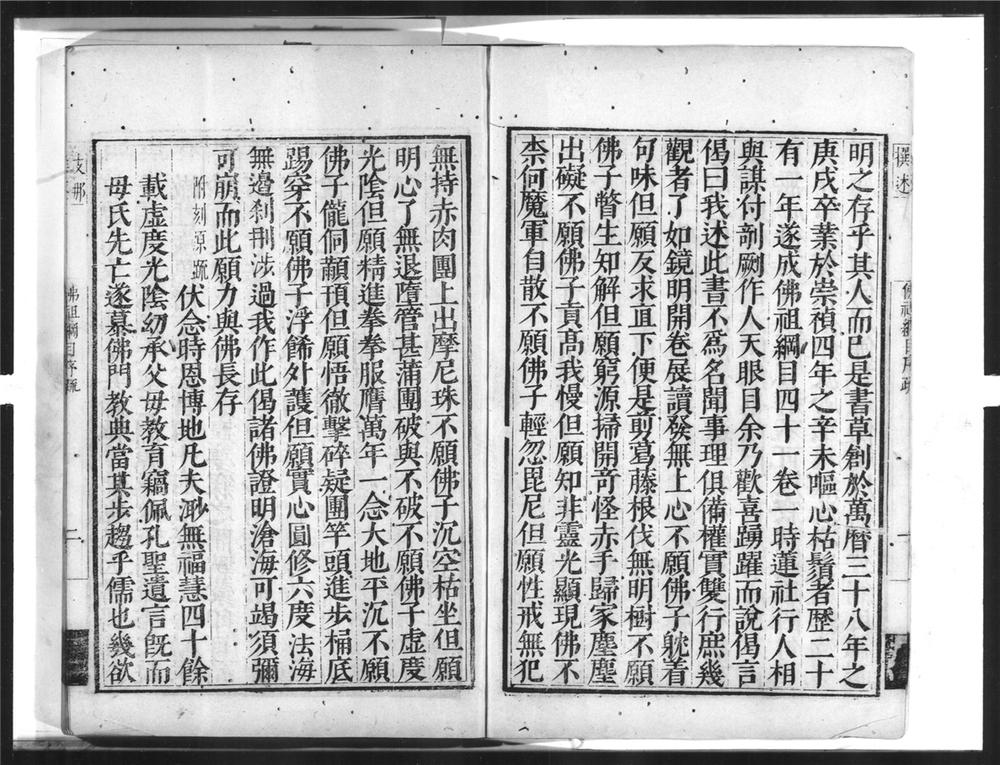 撰述
佛祖綱目序疏
一
明之存乎其人而已是書草創於萬曆三十八年之
庚戌卒業於崇禎四年之辛未嘔心枯鬚者歷二十
有一年遂成佛祖綱目四十一卷一時蓮社行人相
與謀付剞劂作人天眼目余乃歡喜踴躍而說偈言
偈曰我述此書不爲名聞事理俱備權實雙行庶幾
觀者了如鏡明開卷展讀發無上心不願佛子躭着
句味但願反求直下便是剪葛藤根伐無明樹不願
佛子瞥生知解但願窮源掃開奇怪赤手歸家塵塵
出礙不願佛子貢高我慢但願知非靈光顯現佛不
柰何魔軍自散不願佛子輕忽毘尼但願性戒無犯
無持赤肉團上出摩尼珠不願佛子沉空枯坐但願
明心了無退墮管甚蒲團破與不破不願佛子虛度
光陰但願精進拳拳服膺萬年一念大地平沉不願
佛子儱侗顢頇但願悟徹擊碎疑團竿頭進步桶底
踢穿不願佛子浮餙外護但願實心圓修六度法海
無邊刹刹涉過我作此偈諸佛證明滄海可竭須彌
可崩而此願力與佛長存
附刻原疏
伏念時恩博地凡夫渺無福慧四十餘
載虛度光陰幼承父母教育竊佩孔聖遺言旣而
母氏先亡遂慕佛門教典當其步趨乎儒也幾欲
支那
佛祖綱目序疏
二